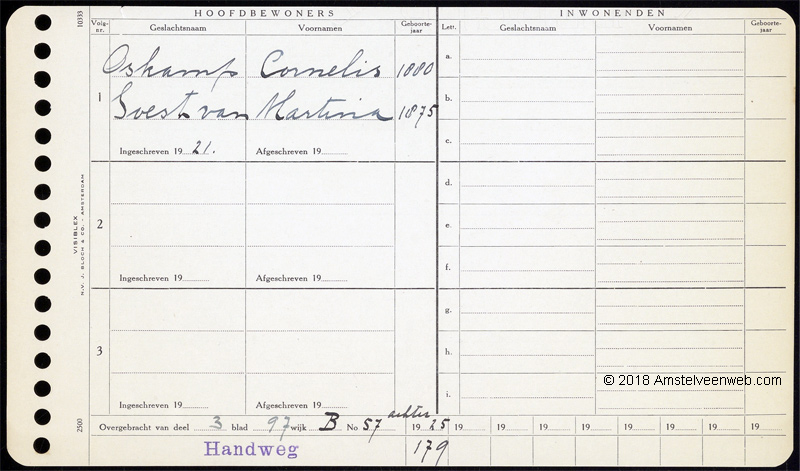 HOOFDBEWONERS INWONENDEN
Volg-nr. Geslachtsnaam Voornamen Geboorte-jaar Lett. Geslachtsnaam Voornamen Geboorte-jaar
10333
1
Oskamp Cornelis 1880
Soest van Martina 1875
Ingeschreven 19 21. Afgeschreven 19
a.
b.
c.
2
Ingeschreven 19 Afgeschreven 19
d.
e.
f.
VISIBLEX
N.V. J. BLOCH & CO. - AMSTERDAM
3
Ingeschreven 19 Afgeschreven 19
g.
h.
i.
© 2018 Amstelveenweb.com
2503
Overgebracht van deel 3 blad 97 wijk B No 57 achter 19 25 19 19 19 19 19 19 19 19
Handweg 179